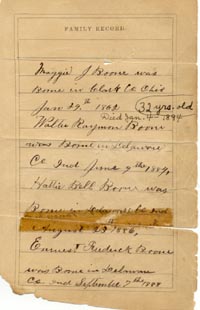 FAMILY RECORD.
Maggie J Boone was
Borne in Clark Co Ohio
Jan 29th 1862 (32 yrs. old
Died Jan. 4th 1894
Walter Raymon Boone
was Borne in Delaware
Co Ind June 9th 1884
Hattie Bell Boone was
Borne in Delaware Co Ind
August 28 1886,
Earnest Frederick Boone
was Borne in Delaware
Co Ind September 7th 1888